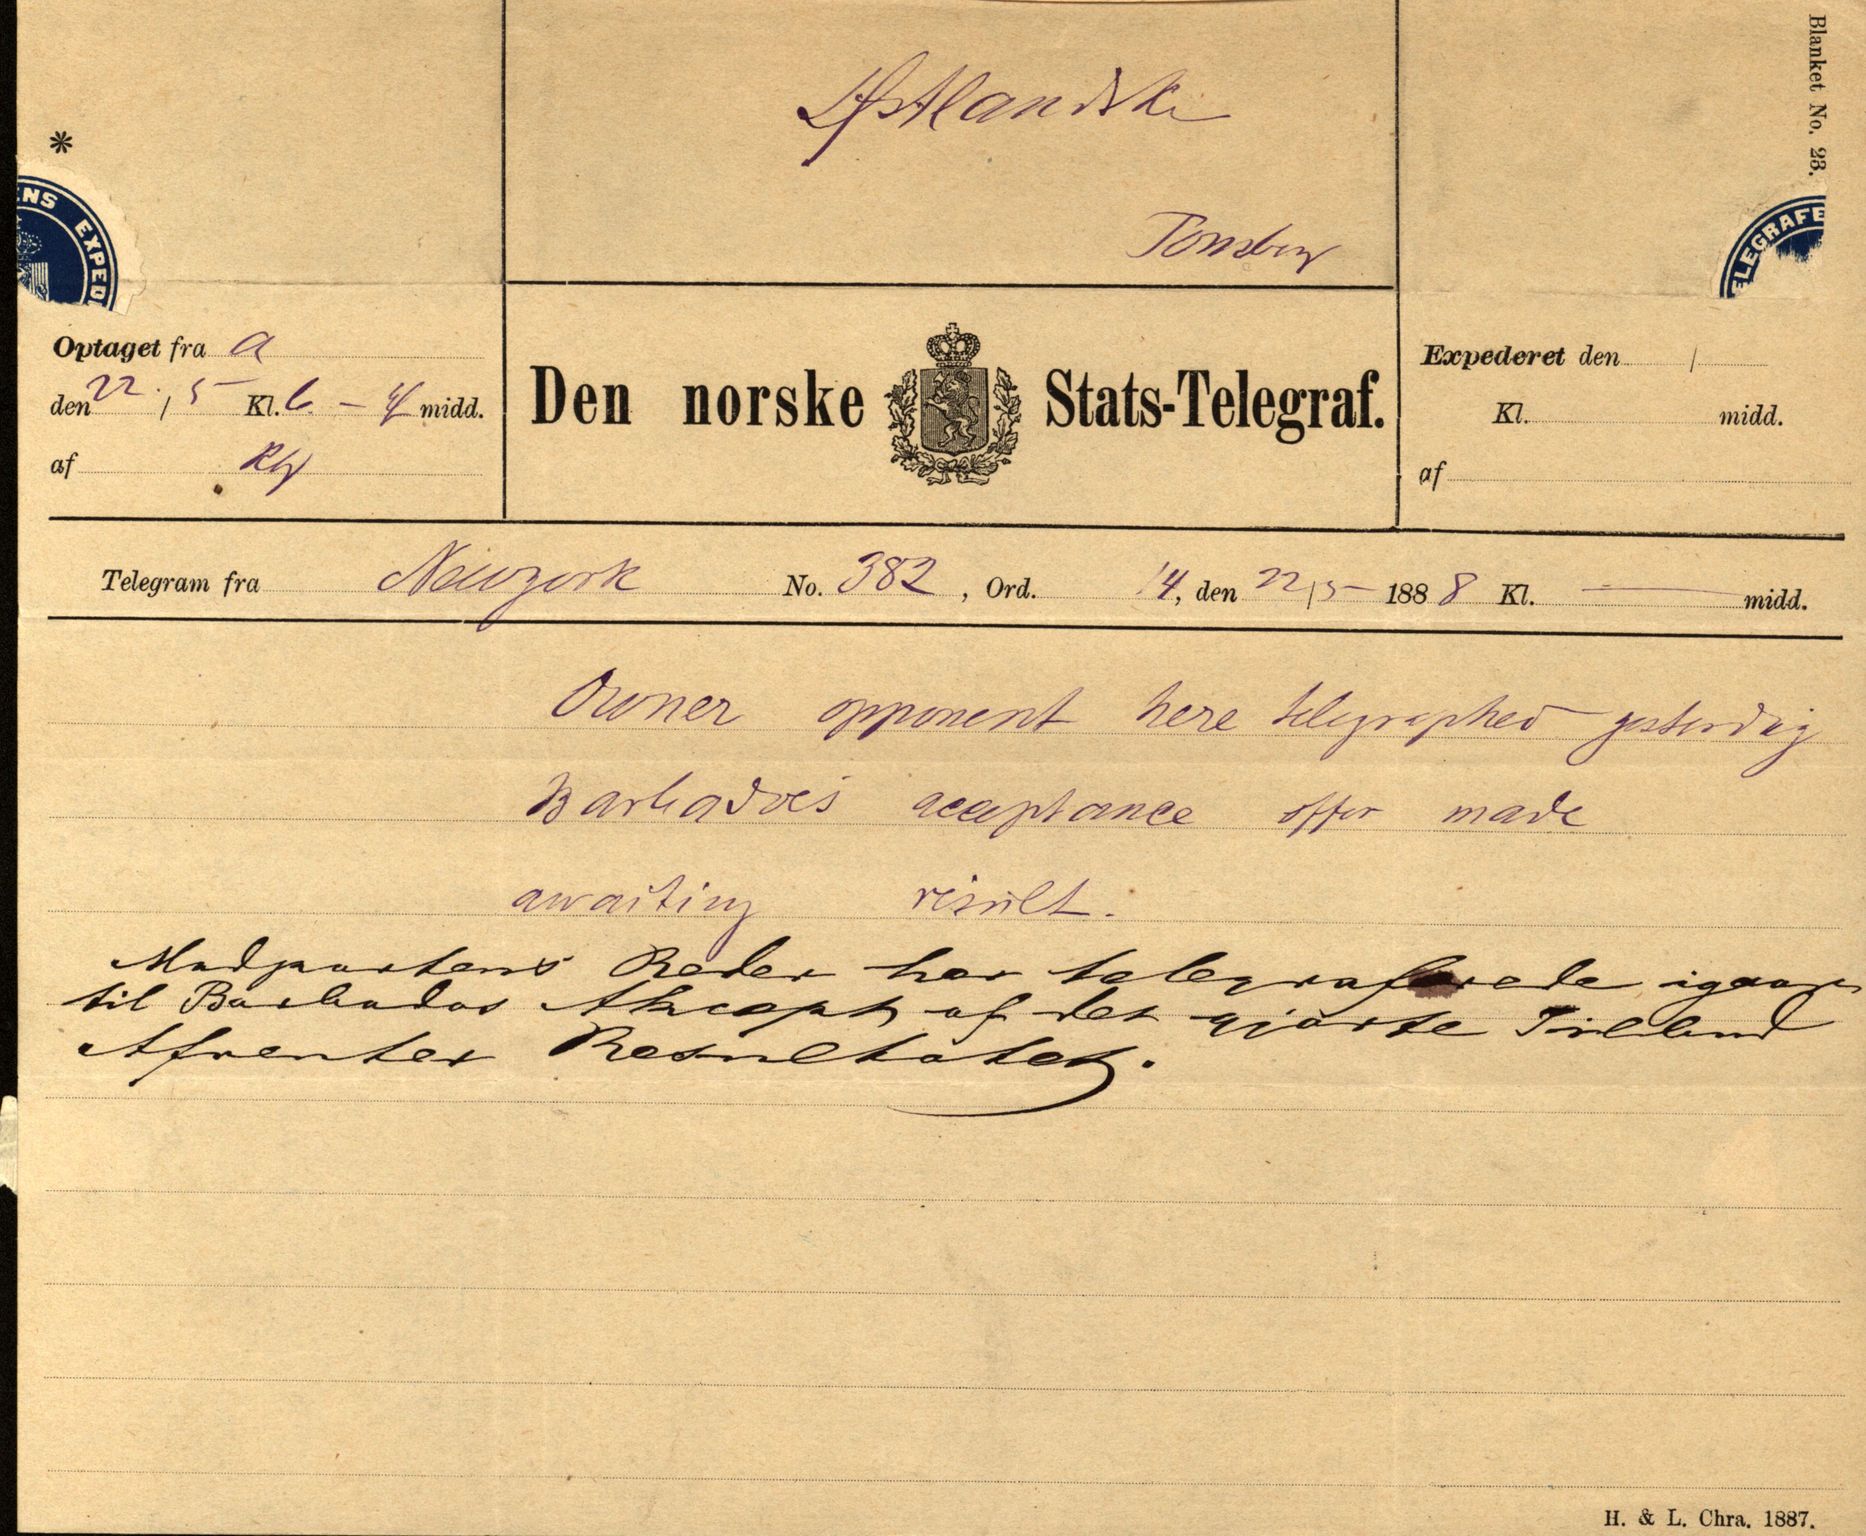 Blanket No. 23.
*
ENS EXPED
TELEGRAFE
Tønsberg
Optaget fra a
den 22/5 Kl. 6 - 4 midd.
af
Den norske Stats-Telegraf.
Expederet den /
Kl. midd.
af
Telegram fra Newyork No. 382, Ord. 14, den 22/5 1888 Kl. — midd.
Owner opponent here telegraphed yesterday
Barbadoes acceptance offer made
awaiting result.
Modpartens Reder har telegraferede igaar
til Barbados Akcept af det gjorte Tilbud
Afventer Resultatet.
H. & L. Chra. 1887.